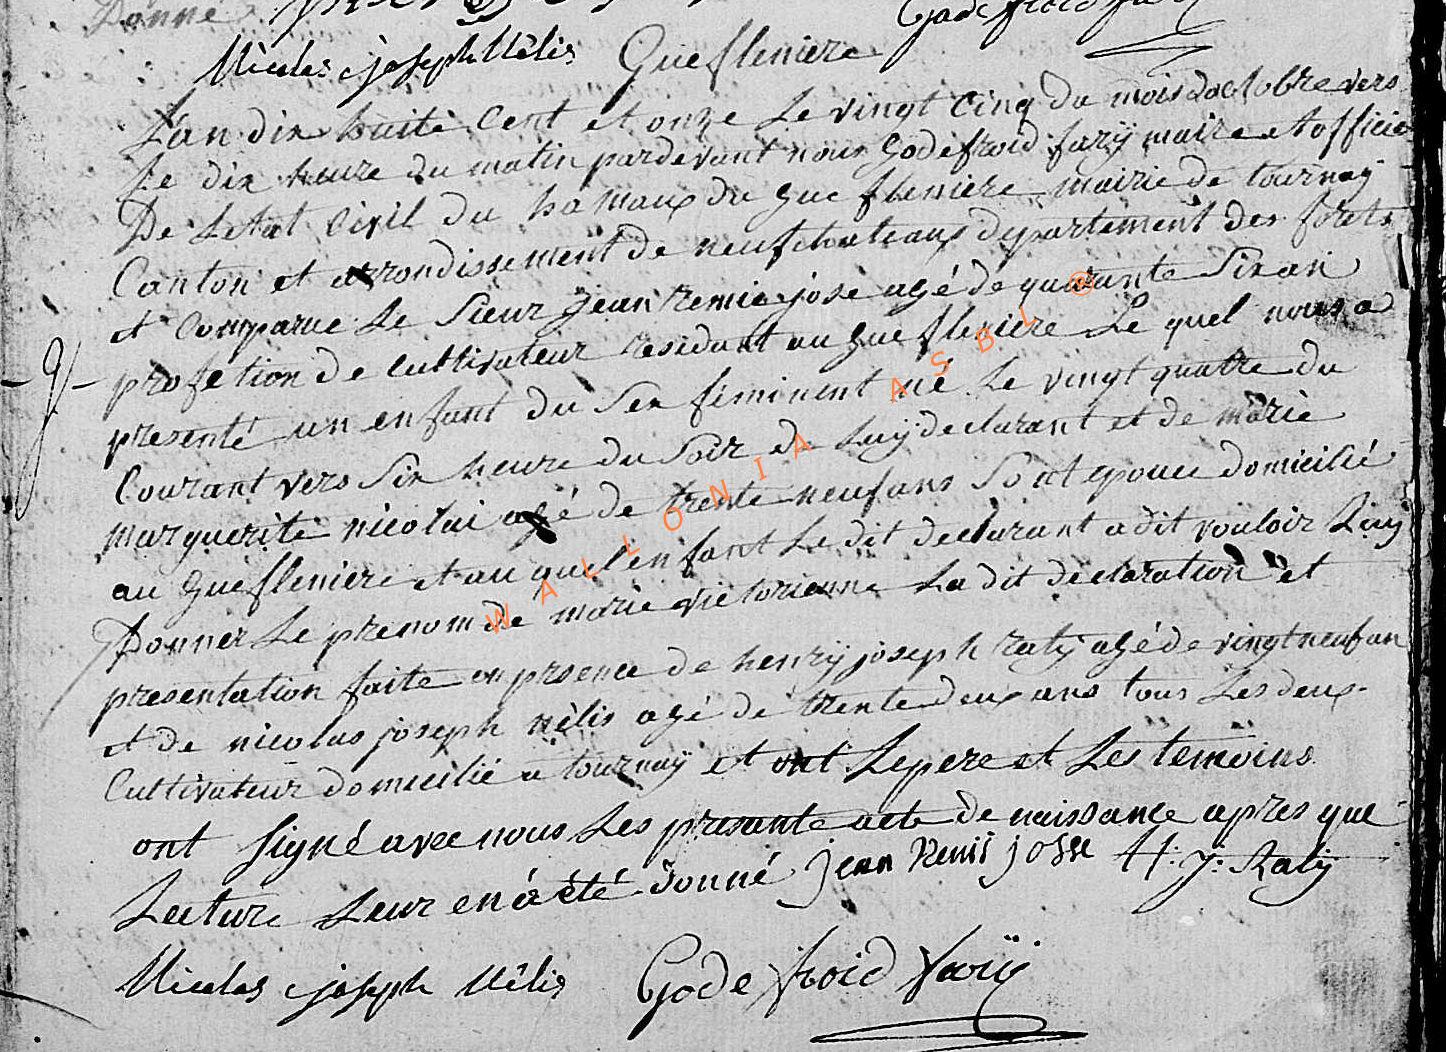 Donné
Nicolas joseph Nêlis Guefleniere
L'an dix huite Cent et onze Le vingt Cinq du mois Doctobre vers
Le dix heure du matin pardevant nous Godefroid farÿ maire et officie
De Letat Civil du hamaux du gue fleniere mairie de tournay
Canton et arrondissement de neufchateaux departement des forets
et Comparue Le Sieur Jean remie jose agé de quarante Six an
profetion De Cultivateur residant au gue fleniere Le quel nous a
presenté un enfant du Sex feminent né Le vingt quatre du
Courant vers Six heure du Soir de Luÿ declarant et de marie
marguerite nicolai agé de trente neuf ans Sont epouce domicilié
au guefleniere et au quel enfant Le dit declarant a dit vouloir Luy
Donner Le prenom de marie victorienne La dit declaration et
presentation faite en prsence de henrÿ joseph ratÿ agé de vingt neuf an
et de nicolas joseph nèlis agé de trente deux ans tous Les deux
Cultivateur domicilié a tournaÿ et ont Le pere et Les temoins
ont Signé avec nous Les presante acte de naissance apres que
Lecture Leur en a été donné jean Remij josse H: J: Ratÿ
Nicolas joseph Nêlis Godefroid farÿ
WALLONIA ASBL ®